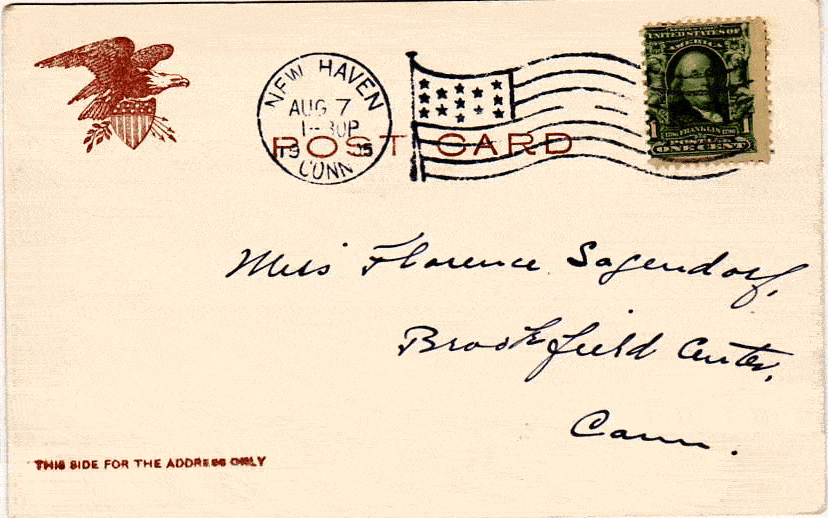 NEW HAVEN
AUG 7
1-30P
1905
CONN
UNITED STATES OF
AMERICA
1 FRANKLIN 1
POSTAGE
ONE CENT
POST CARD
Miss Florence Sagendorf,
Brookfield Center,
Conn.
THIS SIDE FOR THE ADDRESS ONLY